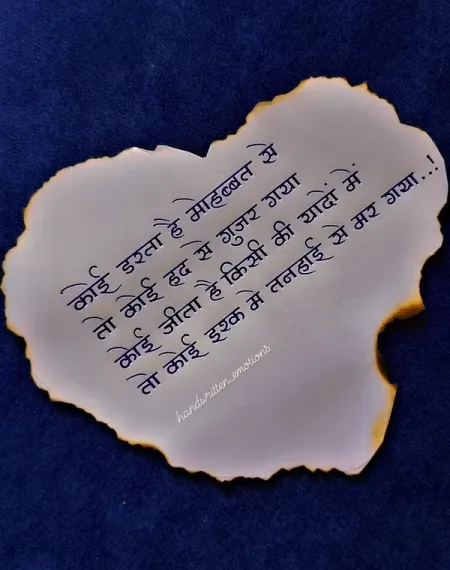 कोई डरता है मोहब्बत से
तो कोई हद से गुजर गया
कोई जीता है किसी की यादों में
तो कोई इश्क मे तनहाई से मर गया...!
handwritten_emotions